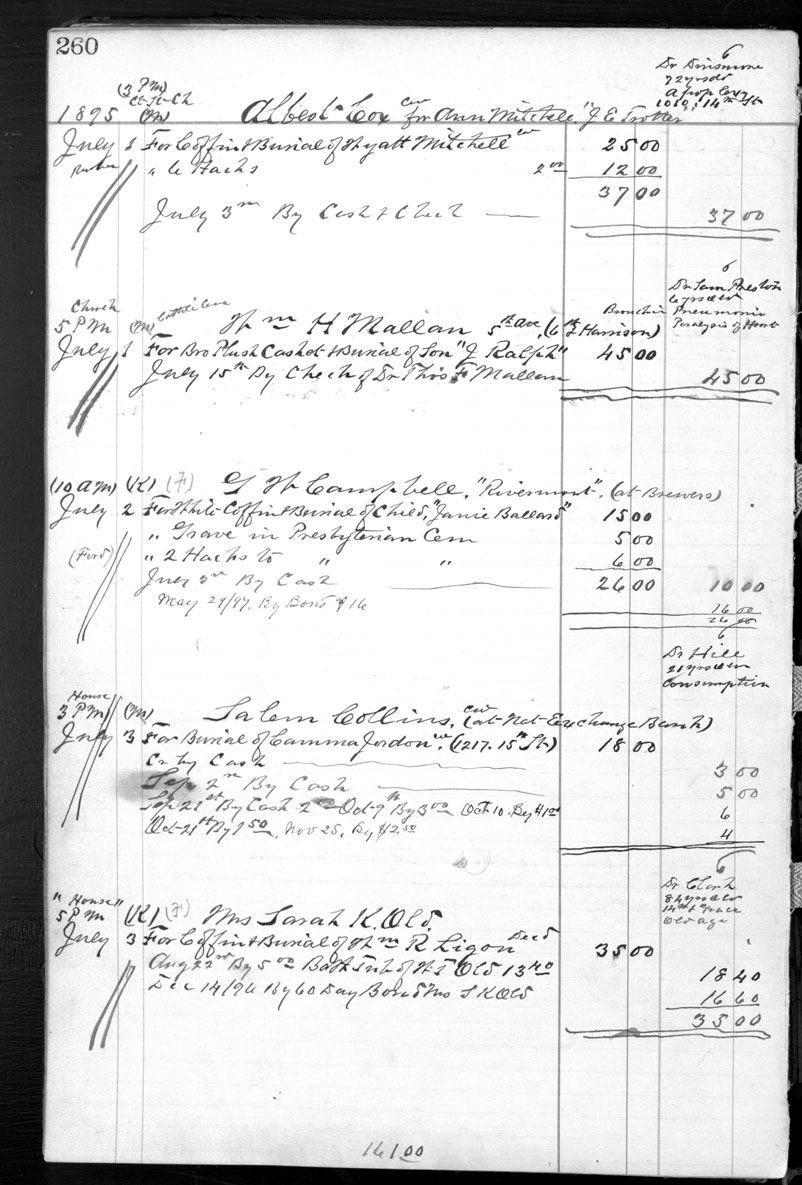 260
6
Dr Dinsmore
72 yrs old
Apoplexy
1010, 14th St
(3 PM)
Ct-St-Ch
1895 (M) Albert Cox col for Ann Mitchell "J E Trotter
July 1 For Coffin & Burial of Wyatt Mitchell col 25 00
" 6 Hacks 2 00 12 00
37 00
July 3rd By Cash & Check 37 00
6
Dr Sam Preston
6 yrs old
Bronchio Pneumonia
Paralysis of Heart
Church
5 PM (M)
Wm H Mallan 5th Ave, (6th & Harrison)
July 1 For Bro Plush Casket & Burial of Son "J Ralph" 45 00
July 15th By Check of Dr Thos F Mallam 45 00
(10 am) (K) (F) G W Campbell, "Rivermont", (at Brewers)
July 2 For White Coffin & Burial of Child, "Janie Ballard" 15 00
" Grave in Presbyterian Cem 5 00
(Ford) " 2 Hacks to " " 6 00
July 3rd By Cash 26 00 10 00
May 29/97. By Bond $16 16 00
26 00
6
Dr Hill
21 yrs old
Consumption
House
3 PM (M) Salem Collins, col (at Nat-Exchange Bank)
July 3 For Burial of Camma Jordon col. (1217. 15th St) 18 00
Cr by Cash 3 00
Sep 2nd By Cash 5 00
Sep 21st By Cash 2 00 Oct-9th By 3 00 Oct 10. By $1 00 6
Oct-21st By 1 50, Nov 25, By $2.50 4
6
Dr Clark
84 yrs old
14th & Grace
Old age
"House"
5 PM (K) (F) Mrs Sarah K. Old.
July 3 For Coffin & Burial of Wm R Ligon Decd 35 00
Aug 22nd By 5 00 Bath Tub of W T Old 13 40 18 40
Dec 14/96 By 60 Day Bond Mrs S K Old 16 60
35 00
161.00